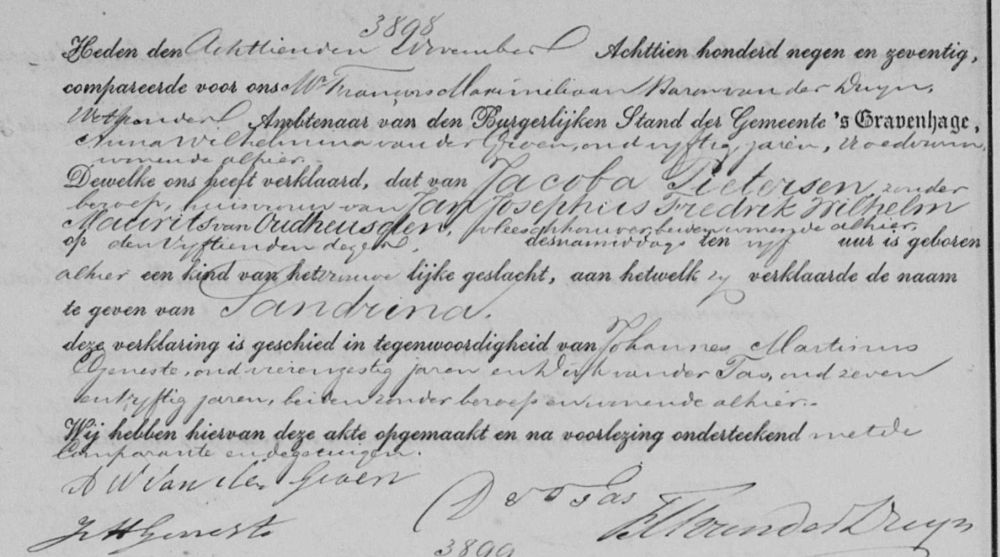 3898
Heden den Achttienden November Achttien honderd negen en zeventig,
compareerde voor ons Mr François Maximiliaan Baron van der Duyn,
Wethouder Ambtenaar van den Burgerlijken Stand der Gemeente 's Gravenhage,
Anna Wilhelmina van der Gieven, oud vyftig jaren, vroedvrouw,
wonende alhier.
Dewelke ons heeft verklaard, dat van Jacoba Pietersen, zonder
beroep, huisvrouw van Jan Josephus Fredrik Wilhelm
Maurits van Oudheusden, vleeschhouwer, beiden wonende alhier,
op den Vyftienden dezer, des namiddags ten vyf uur is geboren
alhier een kind van het vrouwe lijke geslacht, aan hetwelk zy verklaarde de naam
te geven van Sandrina.
deze verklaring is geschied in tegenwoordigheid van Johannes Martinus
Geneste, oud vierenzestig jaren en Dirk van der Tas, oud zeven
en vyftig jaren, beiden zonder beroep en wonende alhier.
Wij hebben hiervan deze akte opgemaakt en na voorlezing onderteekend met de
Comparante en de getuigen.
A W Van der Gieven
D v d Tas
J M Geneste
F M van der Duyn
3899